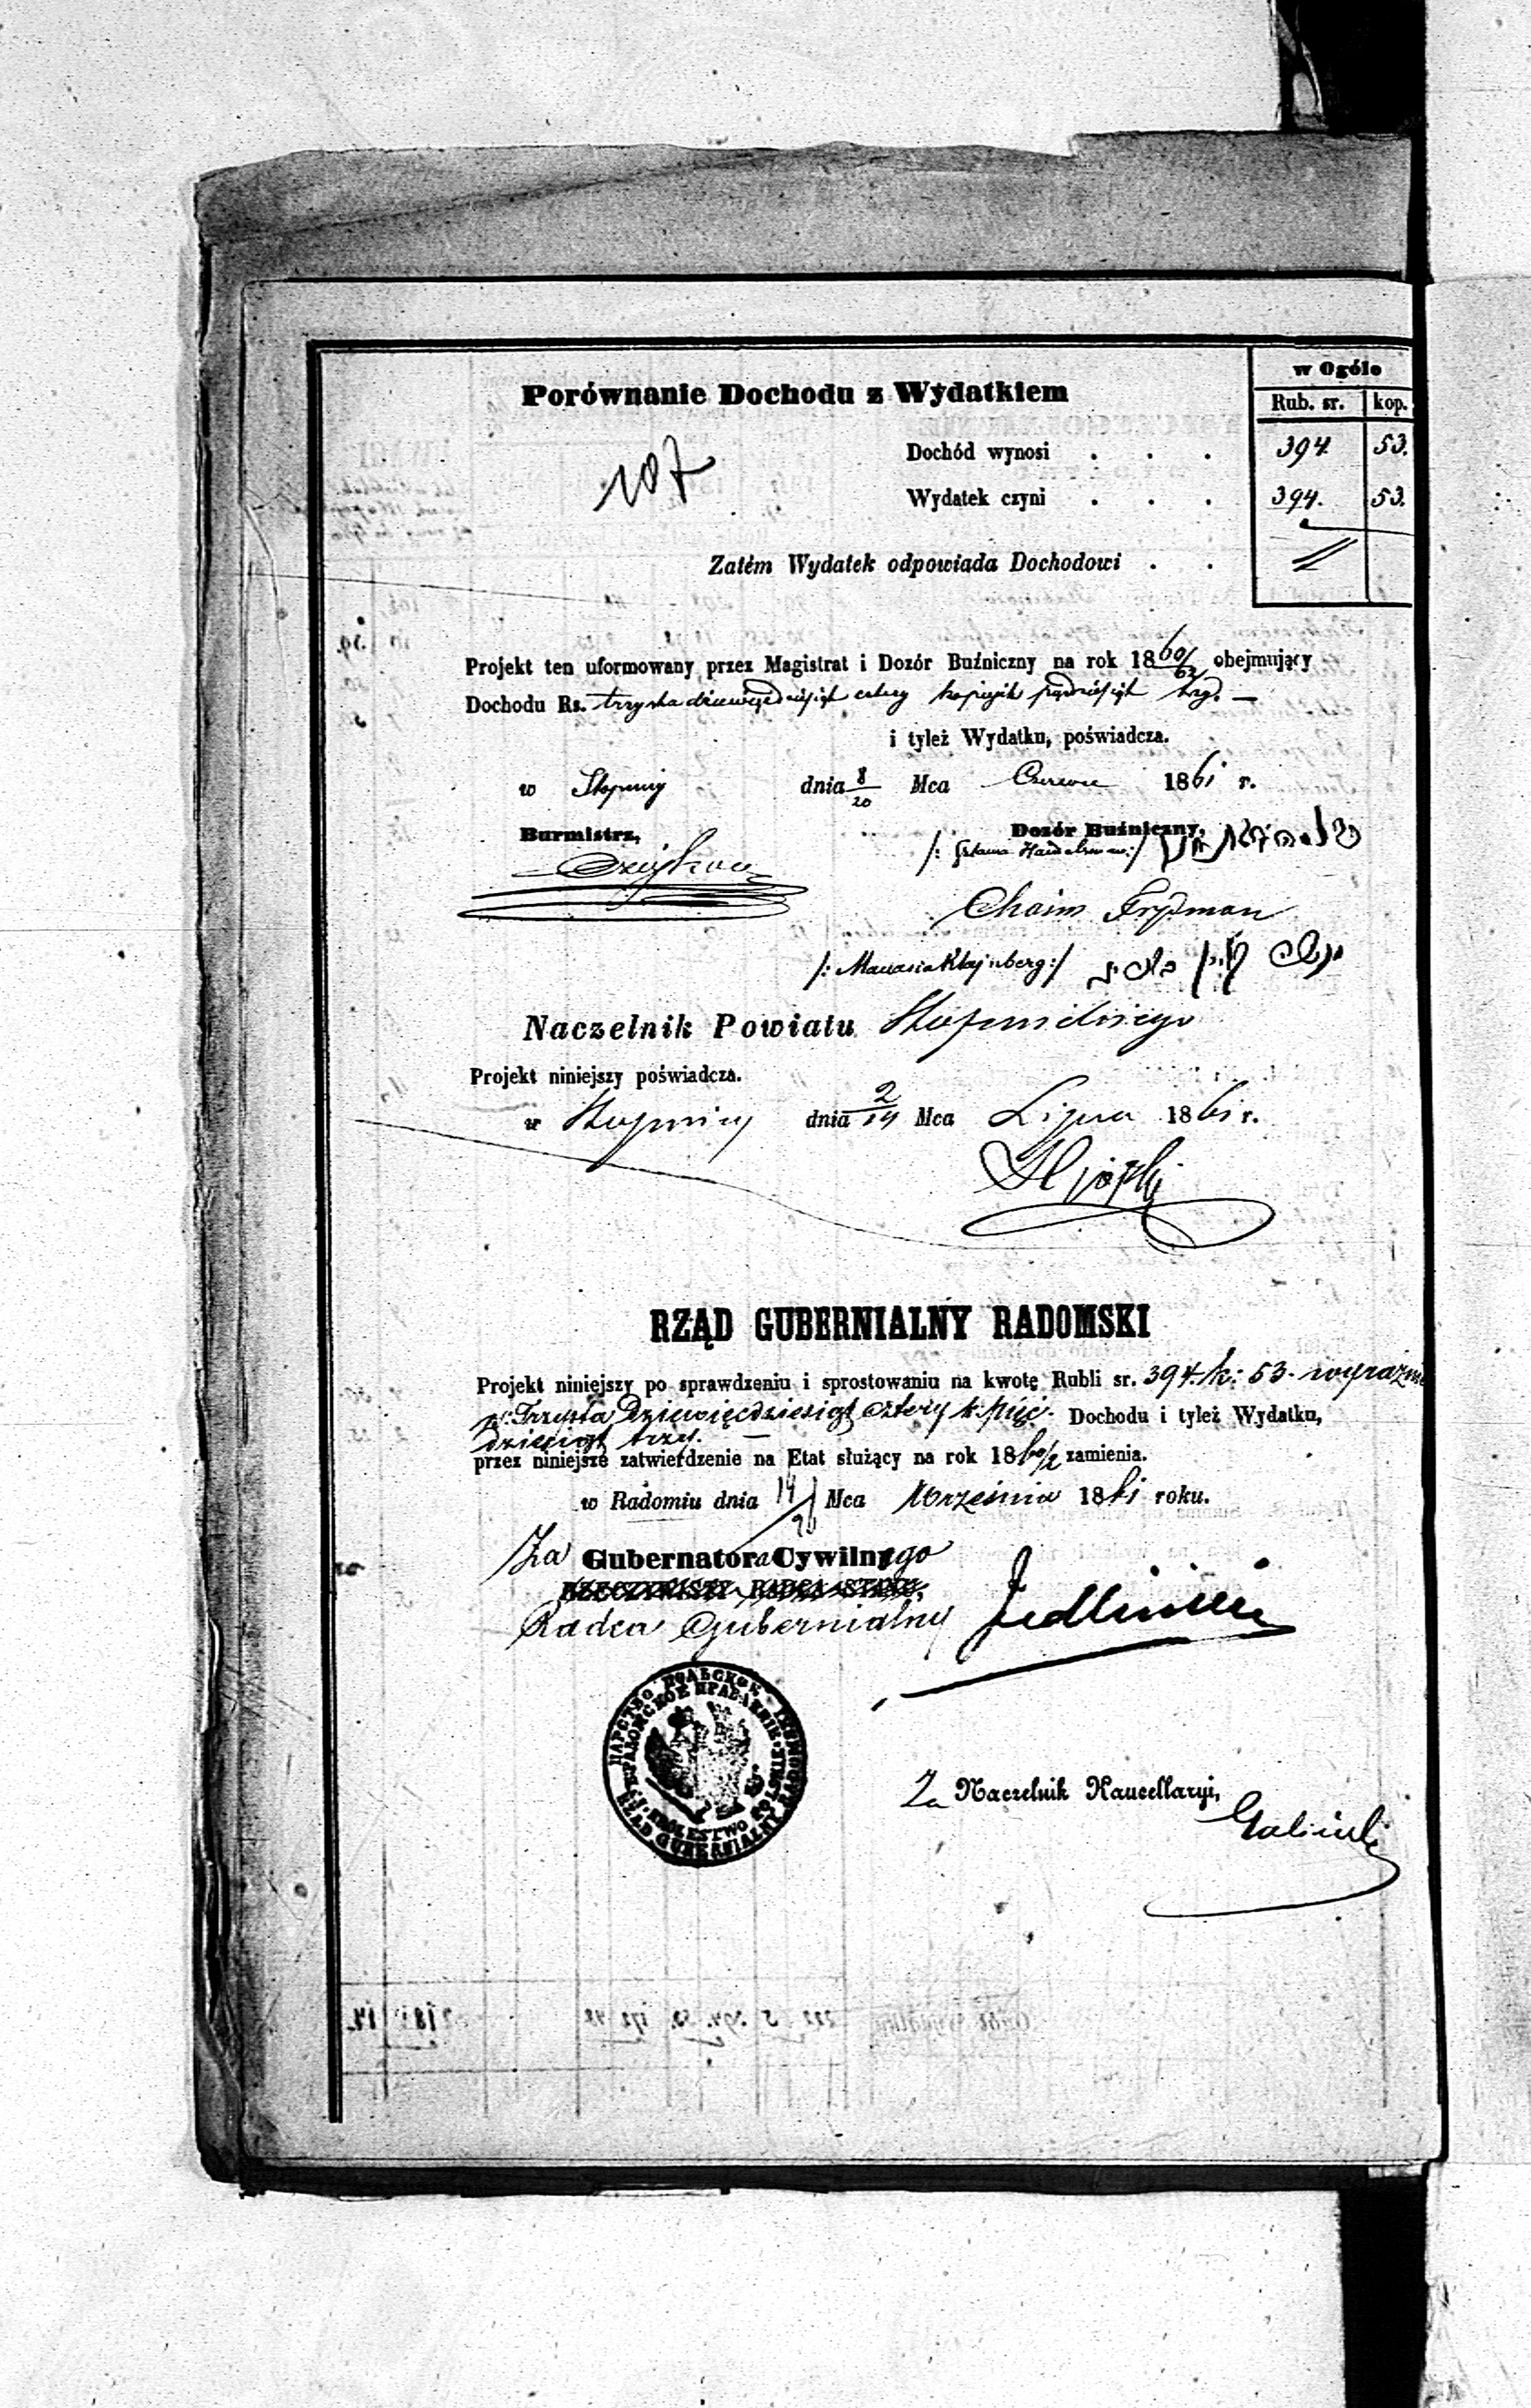 w Ogóle
Porównanie Dochodu z Wydatkiem
Rub. sr. kop.
107
Dochód wynosi . . . 394. 53.
Wydatek czyni . . . 394. 53.
Zatém Wydatek odpowiada Dochodowi . .
Projekt ten uformowany przez Magistrat i Dozór Buźniczny na rok 1860/62 obejmujący
Dochodu Rs. trzysta dziewięćdziesiąt cztery kopiejek pięćdziesiąt trzy. —
i tyleż Wydatku, poświadcza.
w Stopnicy dnia 8/20 Mca Czerwca 1861 r.
Burmistrz, Dozór Buźniczny,
Chaim Frydman
/: Manasia Klajnberg :/
Naczelnik Powiatu Stopnickiego
Projekt niniejszy poświadcza.
w Stopnicy dnia 2/14 Mca Lipca 1861 r.
RZĄD GUBERNIALNY RADOMSKI
Projekt niniejszy po sprawdzeniu i sprostowaniu na kwotę Rubli sr. 394. k: 53. wyraźnie
Trzysta Dziewięćdziesiąt cztery k. pięć- Dochodu i tyleż Wydatku,
dziesiąt trzy. —
przez niniejsze zatwierdzenie na Etat służący na rok 1860/2 zamienia.
w Radomiu dnia 14/26 Mca Września 1861 roku.
Za Gubernatora Cywilnego
RZECZYWISTY RADCA STANU,
Radca Gubernialny
ЦАРСТВО ПОЛЬСКОЕ
РАДОМСКОЕ ПРАВЛЕНІЕ
KRÓLESTWO POLSKIE
RZĄD GUBERNIALNY RADOMSKI
Za Naczelnik Kancellaryi,